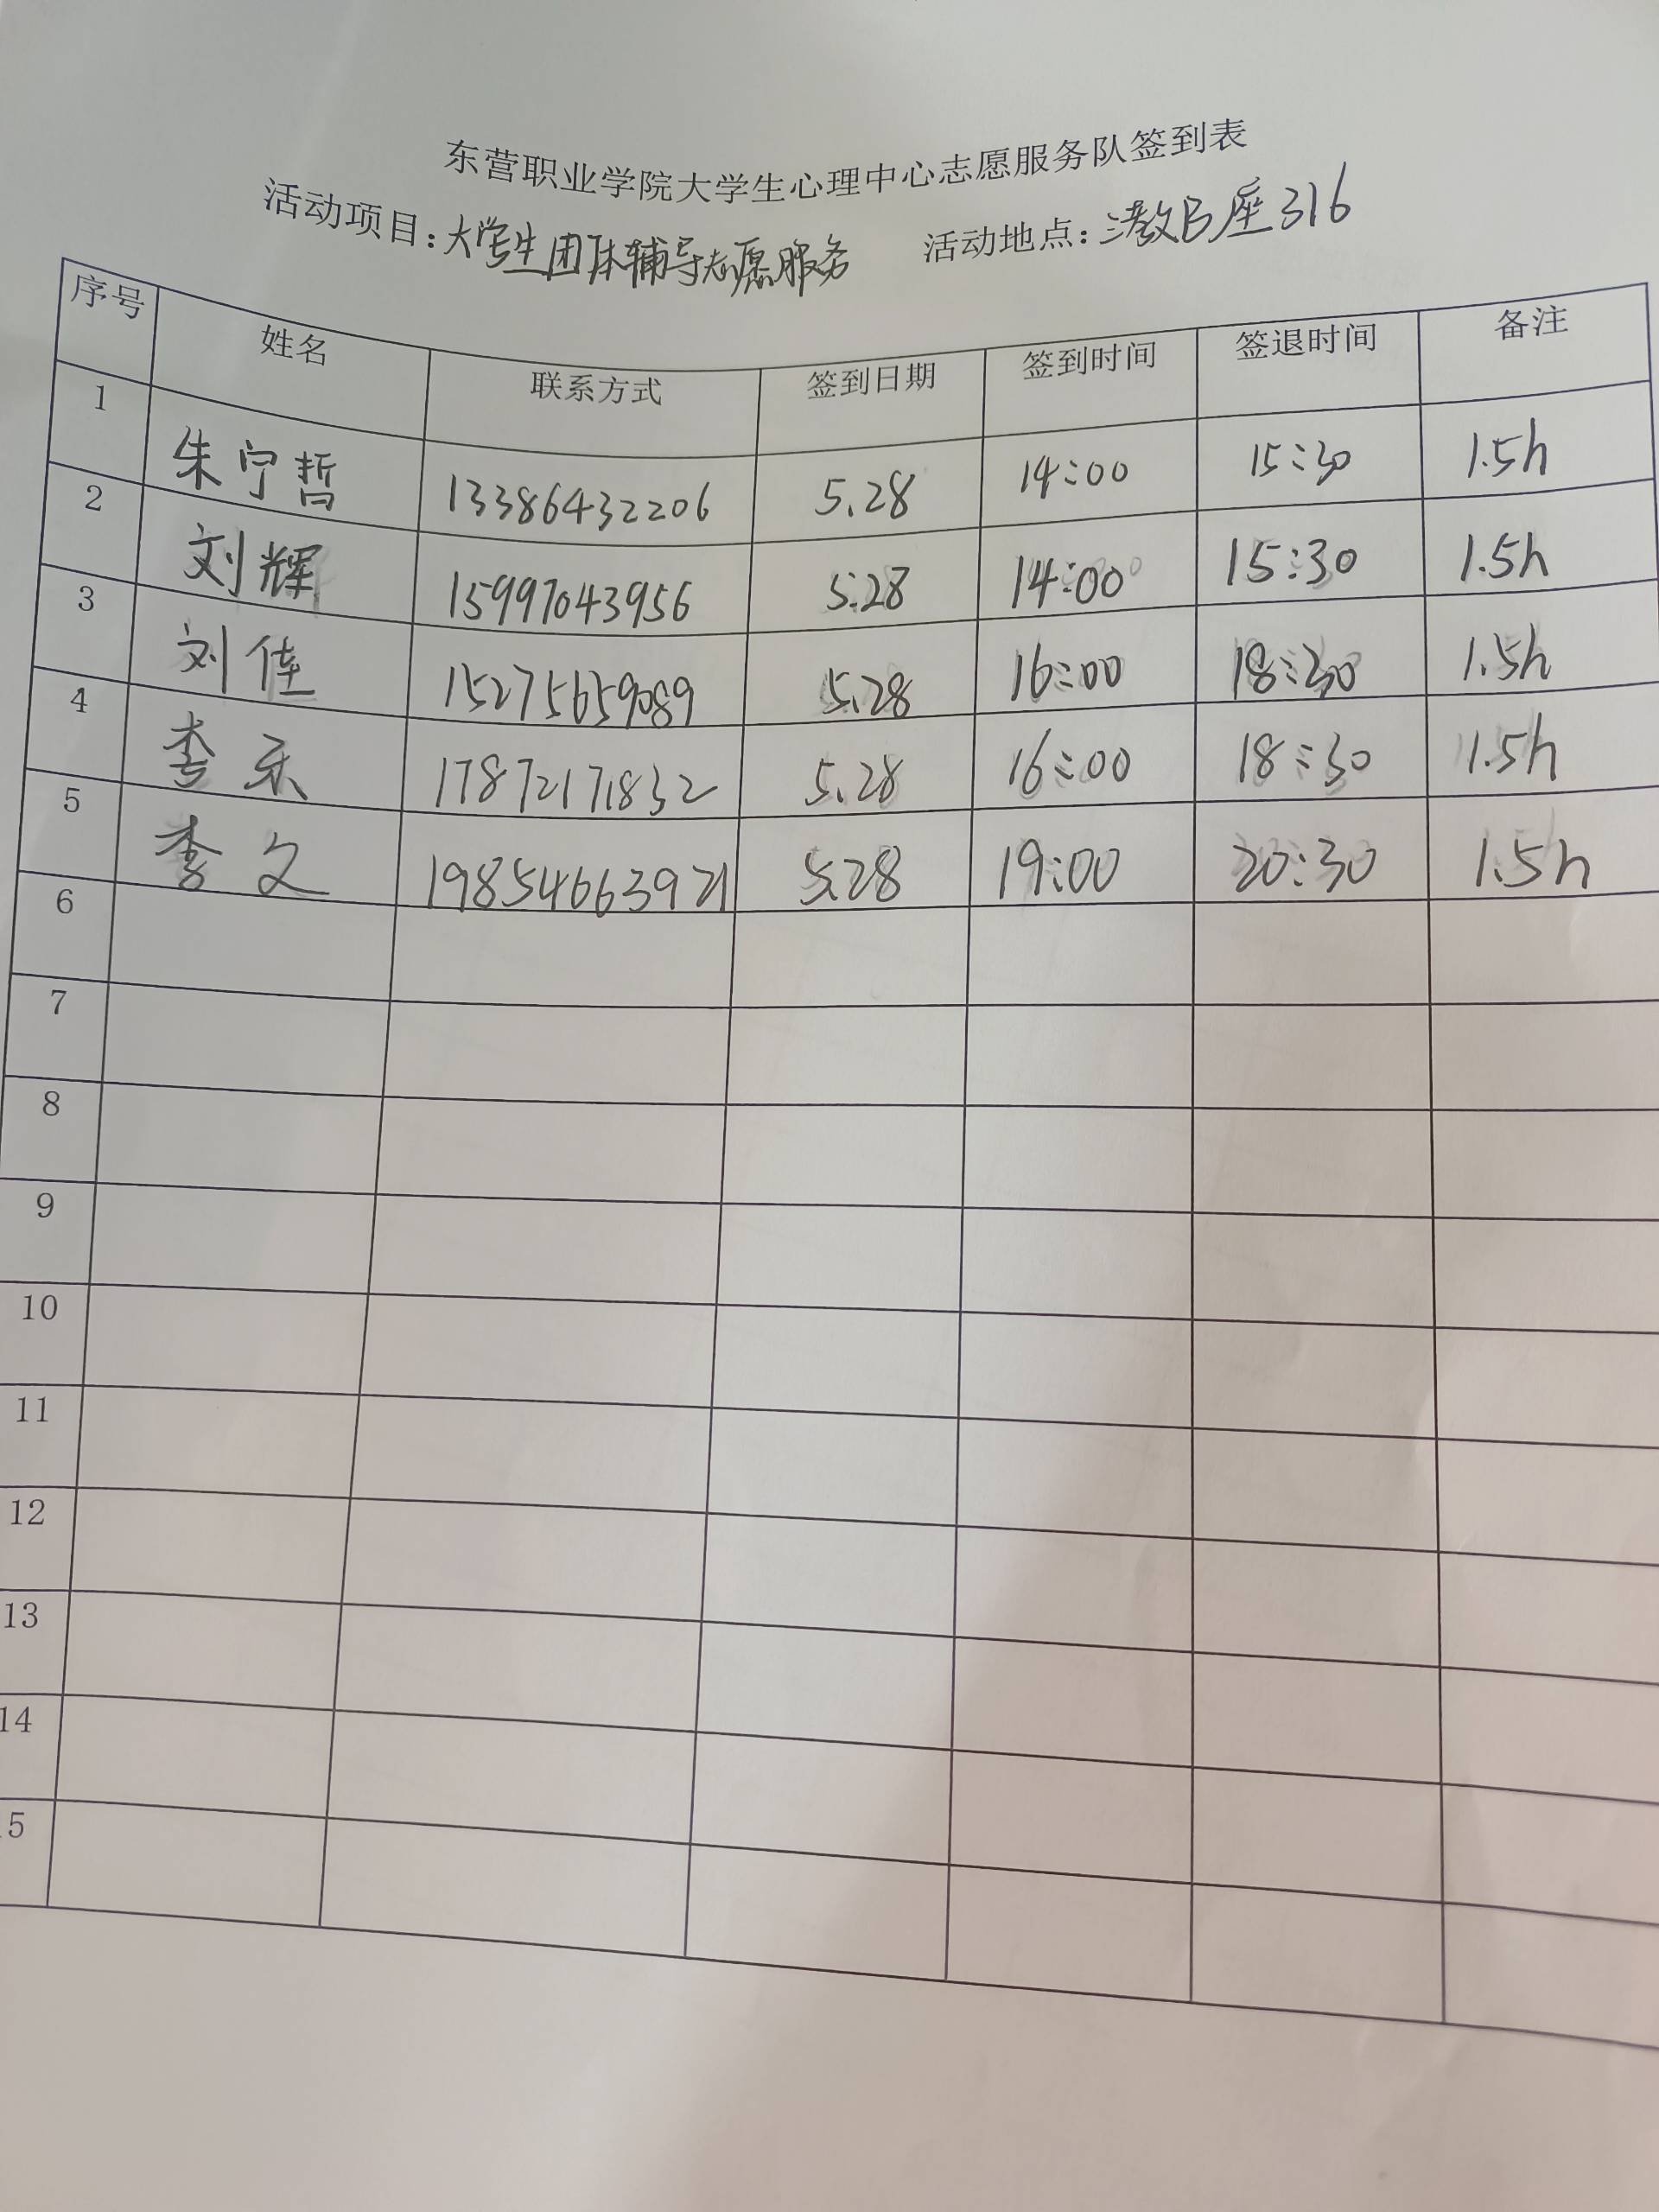 东营职业学院大学生心理中心志愿服务队签到表
活动项目：大学生团体辅导志愿服务 活动地点：教B座316
序号 姓名 联系方式 签到日期 签到时间 签退时间 备注
1 朱宁哲 13386432206 5.28 14:00 15:30 1.5h
2 刘辉 15997043956 5.28 14:00 15:30 1.5h
3 刘佳 15275659089 5.28 16:00 18:30 1.5h
4 李 17872171832 5.28 16:00 18:30 1.5h
5 李文 5.28 19:00 20:30 1.5h
6
7
8
9
10
11
12
13
14
15